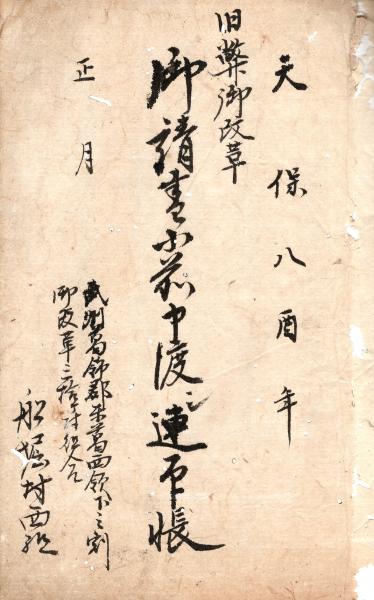 天保八酉年
旧弊御改革
御請書小前申渡之連印帳
正月
武州葛飾郡東葛西領下之割
御改革三拾ヶ村組合
船堀村西組